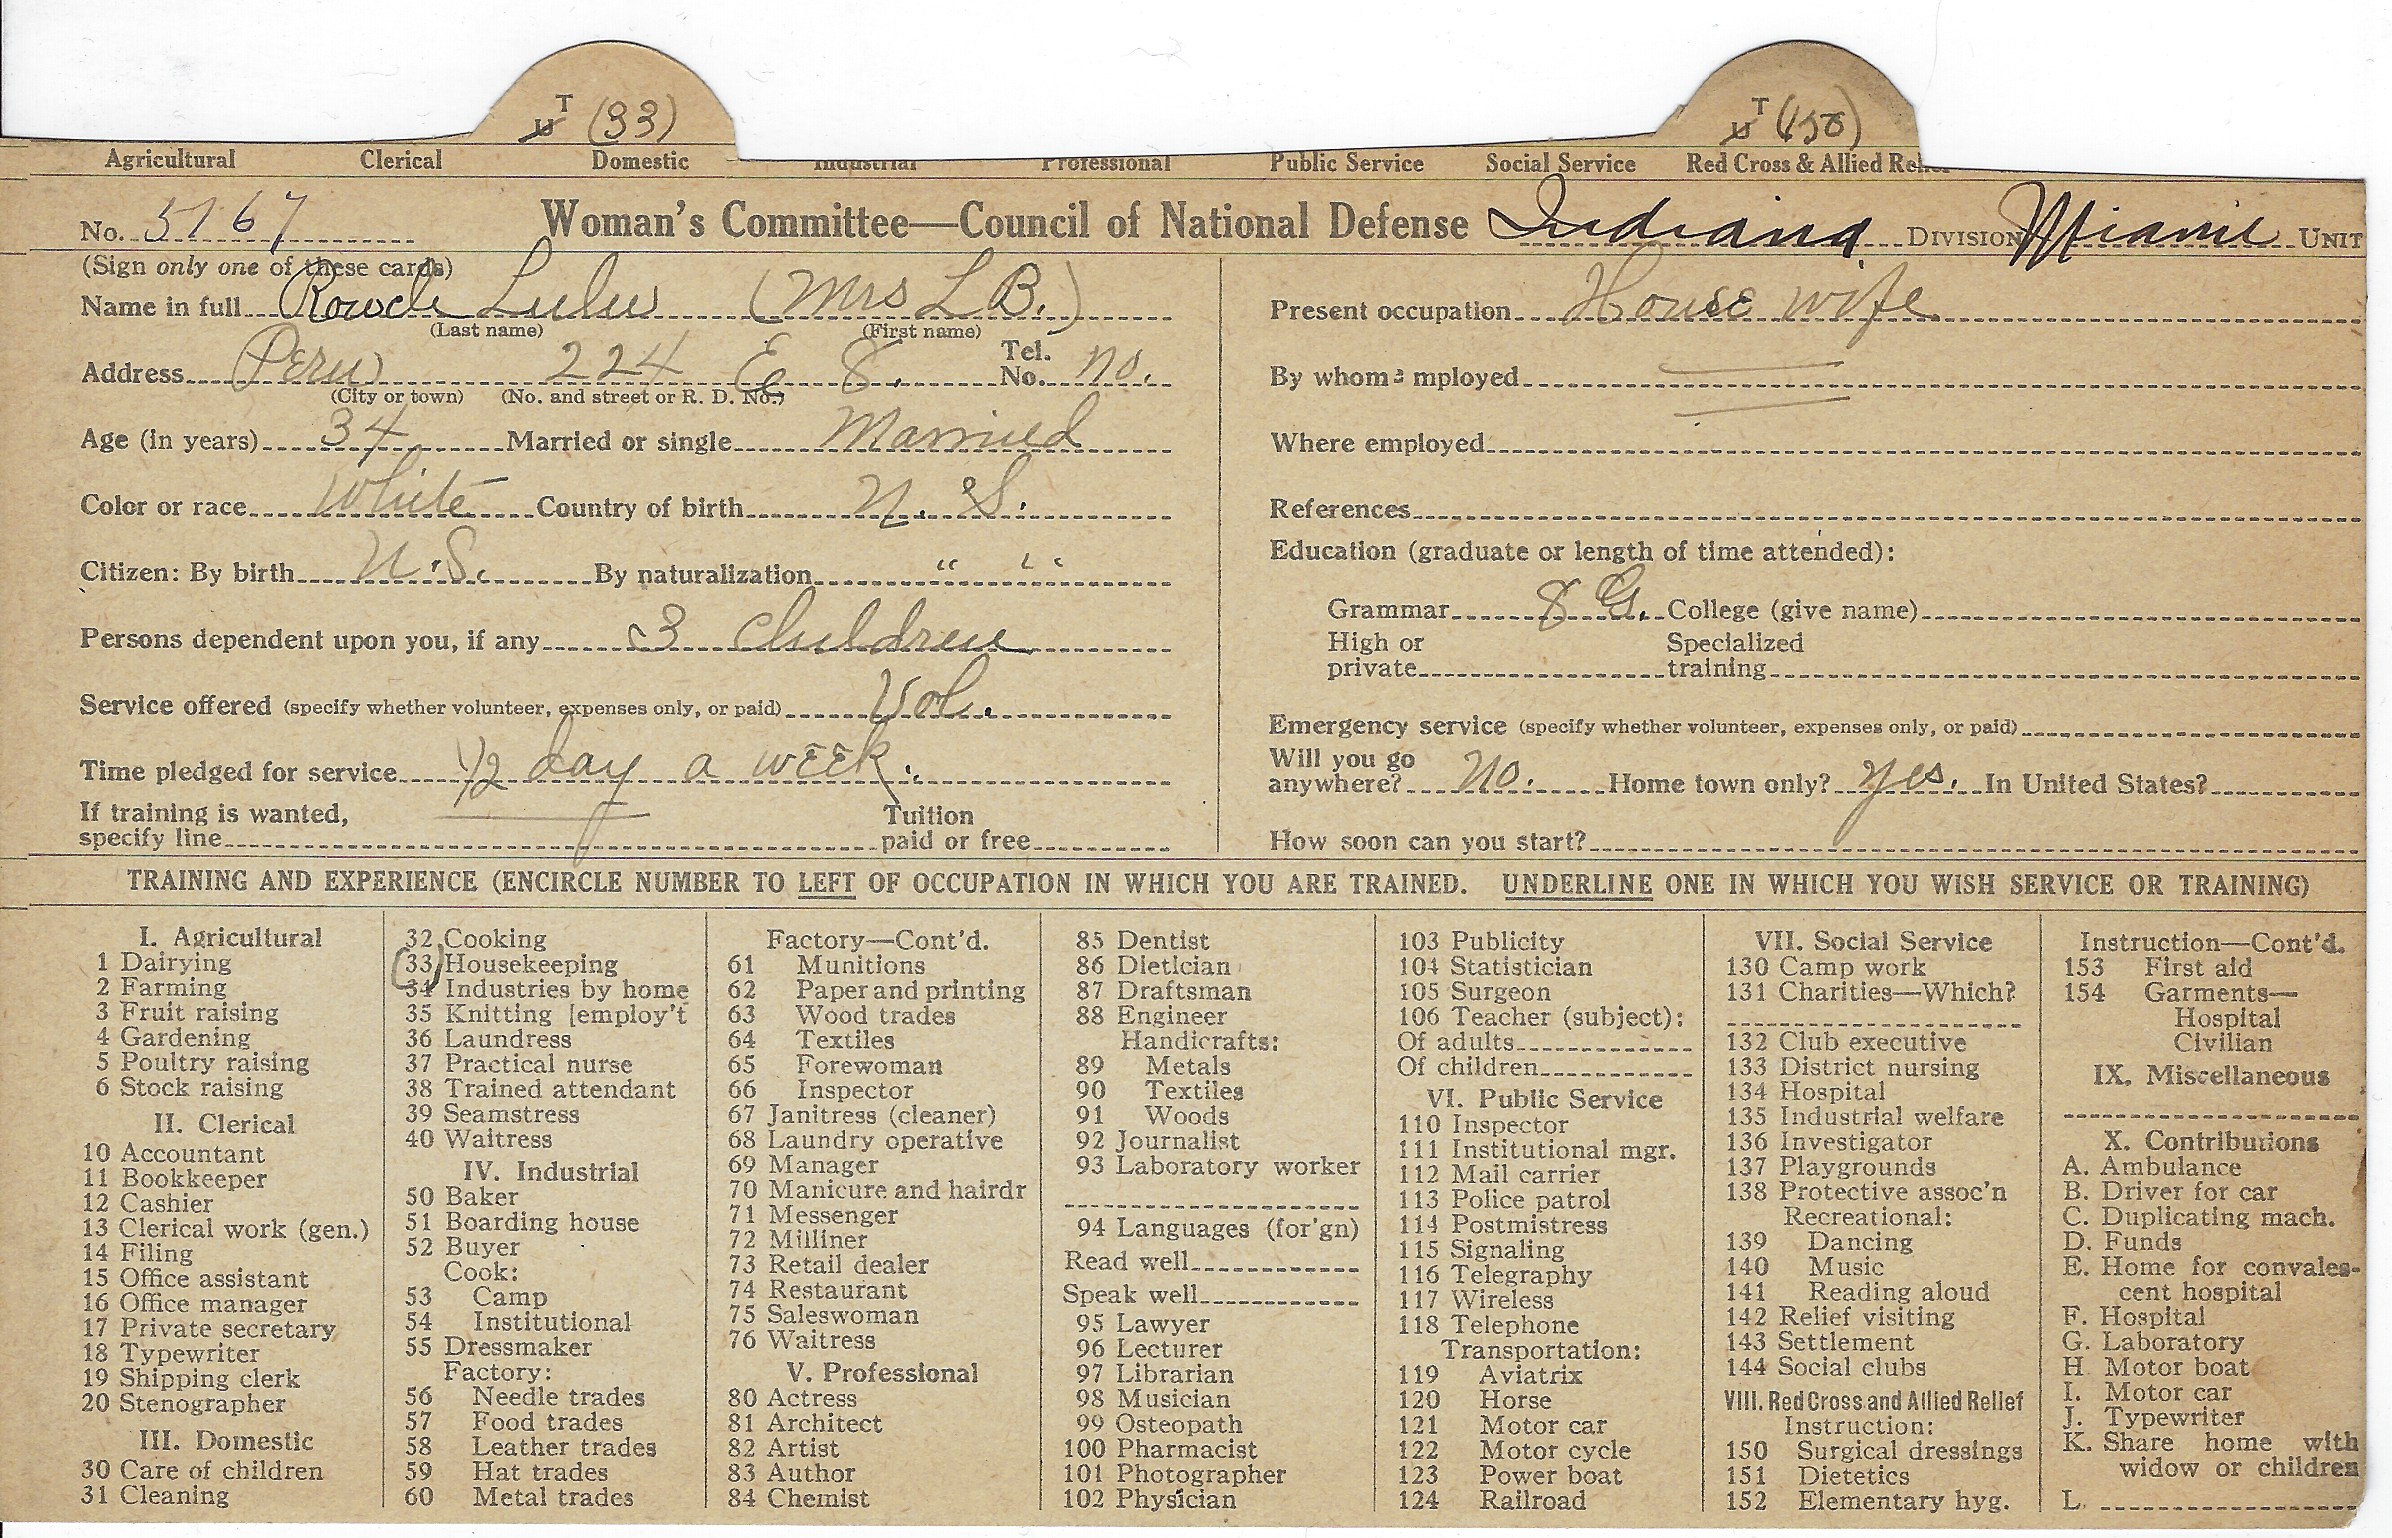 T U (33) T U (150)
Agricultural Clerical Domestic Industrial Professional Public Service Social Service Red Cross & Allied Rel
No. 5767 Woman's Committee—Council of National Defense Indiana DIVISION Miami UNIT
(Sign only one of these cards)
Name in full Lulu (Mrs L B.)
(Last name) (First name)
Address Peru 224 E 8. Tel. No. no.
(City or town) (No. and street or R. D. No.)
Age (in years) 34 Married or single Married
Color or race White Country of birth U. S.
Citizen: By birth U.S. By naturalization " "
Persons dependent upon you, if any 3 children
Service offered (specify whether volunteer, expenses only, or paid) Vol.
Time pledged for service 1/2 day a week.
If training is wanted, specify line Tuition paid or free
Present occupation House wife
By whom employed
Where employed
References
Education (graduate or length of time attended):
Grammar 8 G. College (give name)
High or private Specialized training
Emergency service (specify whether volunteer, expenses only, or paid)
Will you go anywhere? No. Home town only? yes. In United States?
How soon can you start?
TRAINING AND EXPERIENCE (ENCIRCLE NUMBER TO LEFT OF OCCUPATION IN WHICH YOU ARE TRAINED. UNDERLINE ONE IN WHICH YOU WISH SERVICE OR TRAINING)
I. Agricultural
1 Dairying
2 Farming
3 Fruit raising
4 Gardening
5 Poultry raising
6 Stock raising
II. Clerical
10 Accountant
11 Bookkeeper
12 Cashier
13 Clerical work (gen.)
14 Filing
15 Office assistant
16 Office manager
17 Private secretary
18 Typewriter
19 Shipping clerk
20 Stenographer
III. Domestic
30 Care of children
31 Cleaning
32 Cooking
33 Housekeeping
34 Industries by home
35 Knitting [employ't
36 Laundress
37 Practical nurse
38 Trained attendant
39 Seamstress
40 Waitress
IV. Industrial
50 Baker
51 Boarding house
52 Buyer
Cook:
53 Camp
54 Institutional
55 Dressmaker
Factory:
56 Needle trades
57 Food trades
58 Leather trades
59 Hat trades
60 Metal trades
Factory—Cont'd.
61 Munitions
62 Paper and printing
63 Wood trades
64 Textiles
65 Forewoman
66 Inspector
67 Janitress (cleaner)
68 Laundry operative
69 Manager
70 Manicure and hairdr
71 Messenger
72 Milliner
73 Retail dealer
74 Restaurant
75 Saleswoman
76 Waitress
V. Professional
80 Actress
81 Architect
82 Artist
83 Author
84 Chemist
85 Dentist
86 Dietician
87 Draftsman
88 Engineer
Handicrafts:
89 Metals
90 Textiles
91 Woods
92 Journalist
93 Laboratory worker
94 Languages (for'gn)
Read well
Speak well
95 Lawyer
96 Lecturer
97 Librarian
98 Musician
99 Osteopath
100 Pharmacist
101 Photographer
102 Physician
103 Publicity
104 Statistician
105 Surgeon
106 Teacher (subject):
Of adults
Of children
VI. Public Service
110 Inspector
111 Institutional mgr.
112 Mail carrier
113 Police patrol
114 Postmistress
115 Signaling
116 Telegraphy
117 Wireless
118 Telephone
Transportation:
119 Aviatrix
120 Horse
121 Motor car
122 Motor cycle
123 Power boat
124 Railroad
VII. Social Service
130 Camp work
131 Charities—Which?
132 Club executive
133 District nursing
134 Hospital
135 Industrial welfare
136 Investigator
137 Playgrounds
138 Protective assoc'n
Recreational:
139 Dancing
140 Music
141 Reading aloud
142 Relief visiting
143 Settlement
144 Social clubs
VIII. Red Cross and Allied Relief
Instruction:
150 Surgical dressings
151 Dietetics
152 Elementary hyg.
Instruction—Cont'd.
153 First aid
154 Garments—
Hospital
Civilian
IX. Miscellaneous
X. Contributions
A. Ambulance
B. Driver for car
C. Duplicating mach.
D. Funds
E. Home for convales-
cent hospital
F. Hospital
G. Laboratory
H. Motor boat
I. Motor car
J. Typewriter
K. Share home with
widow or children
L.